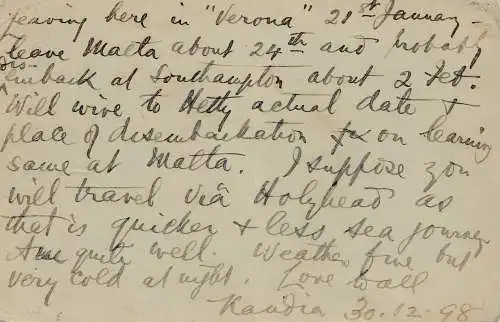 Leaving here in "Verona" 21st January -
leave Malta about 24th and probably
disembark at Southampton about 2 Feb.
Will wire to Hetty actual date &
place of disembarkation &c on learning
same at Malta. I suppose you
will travel viâ Holyhead as
that is quicker & less sea journey
Am quite well. Weather fine but
very cold at night. Love to all
Kandia 30.12.98